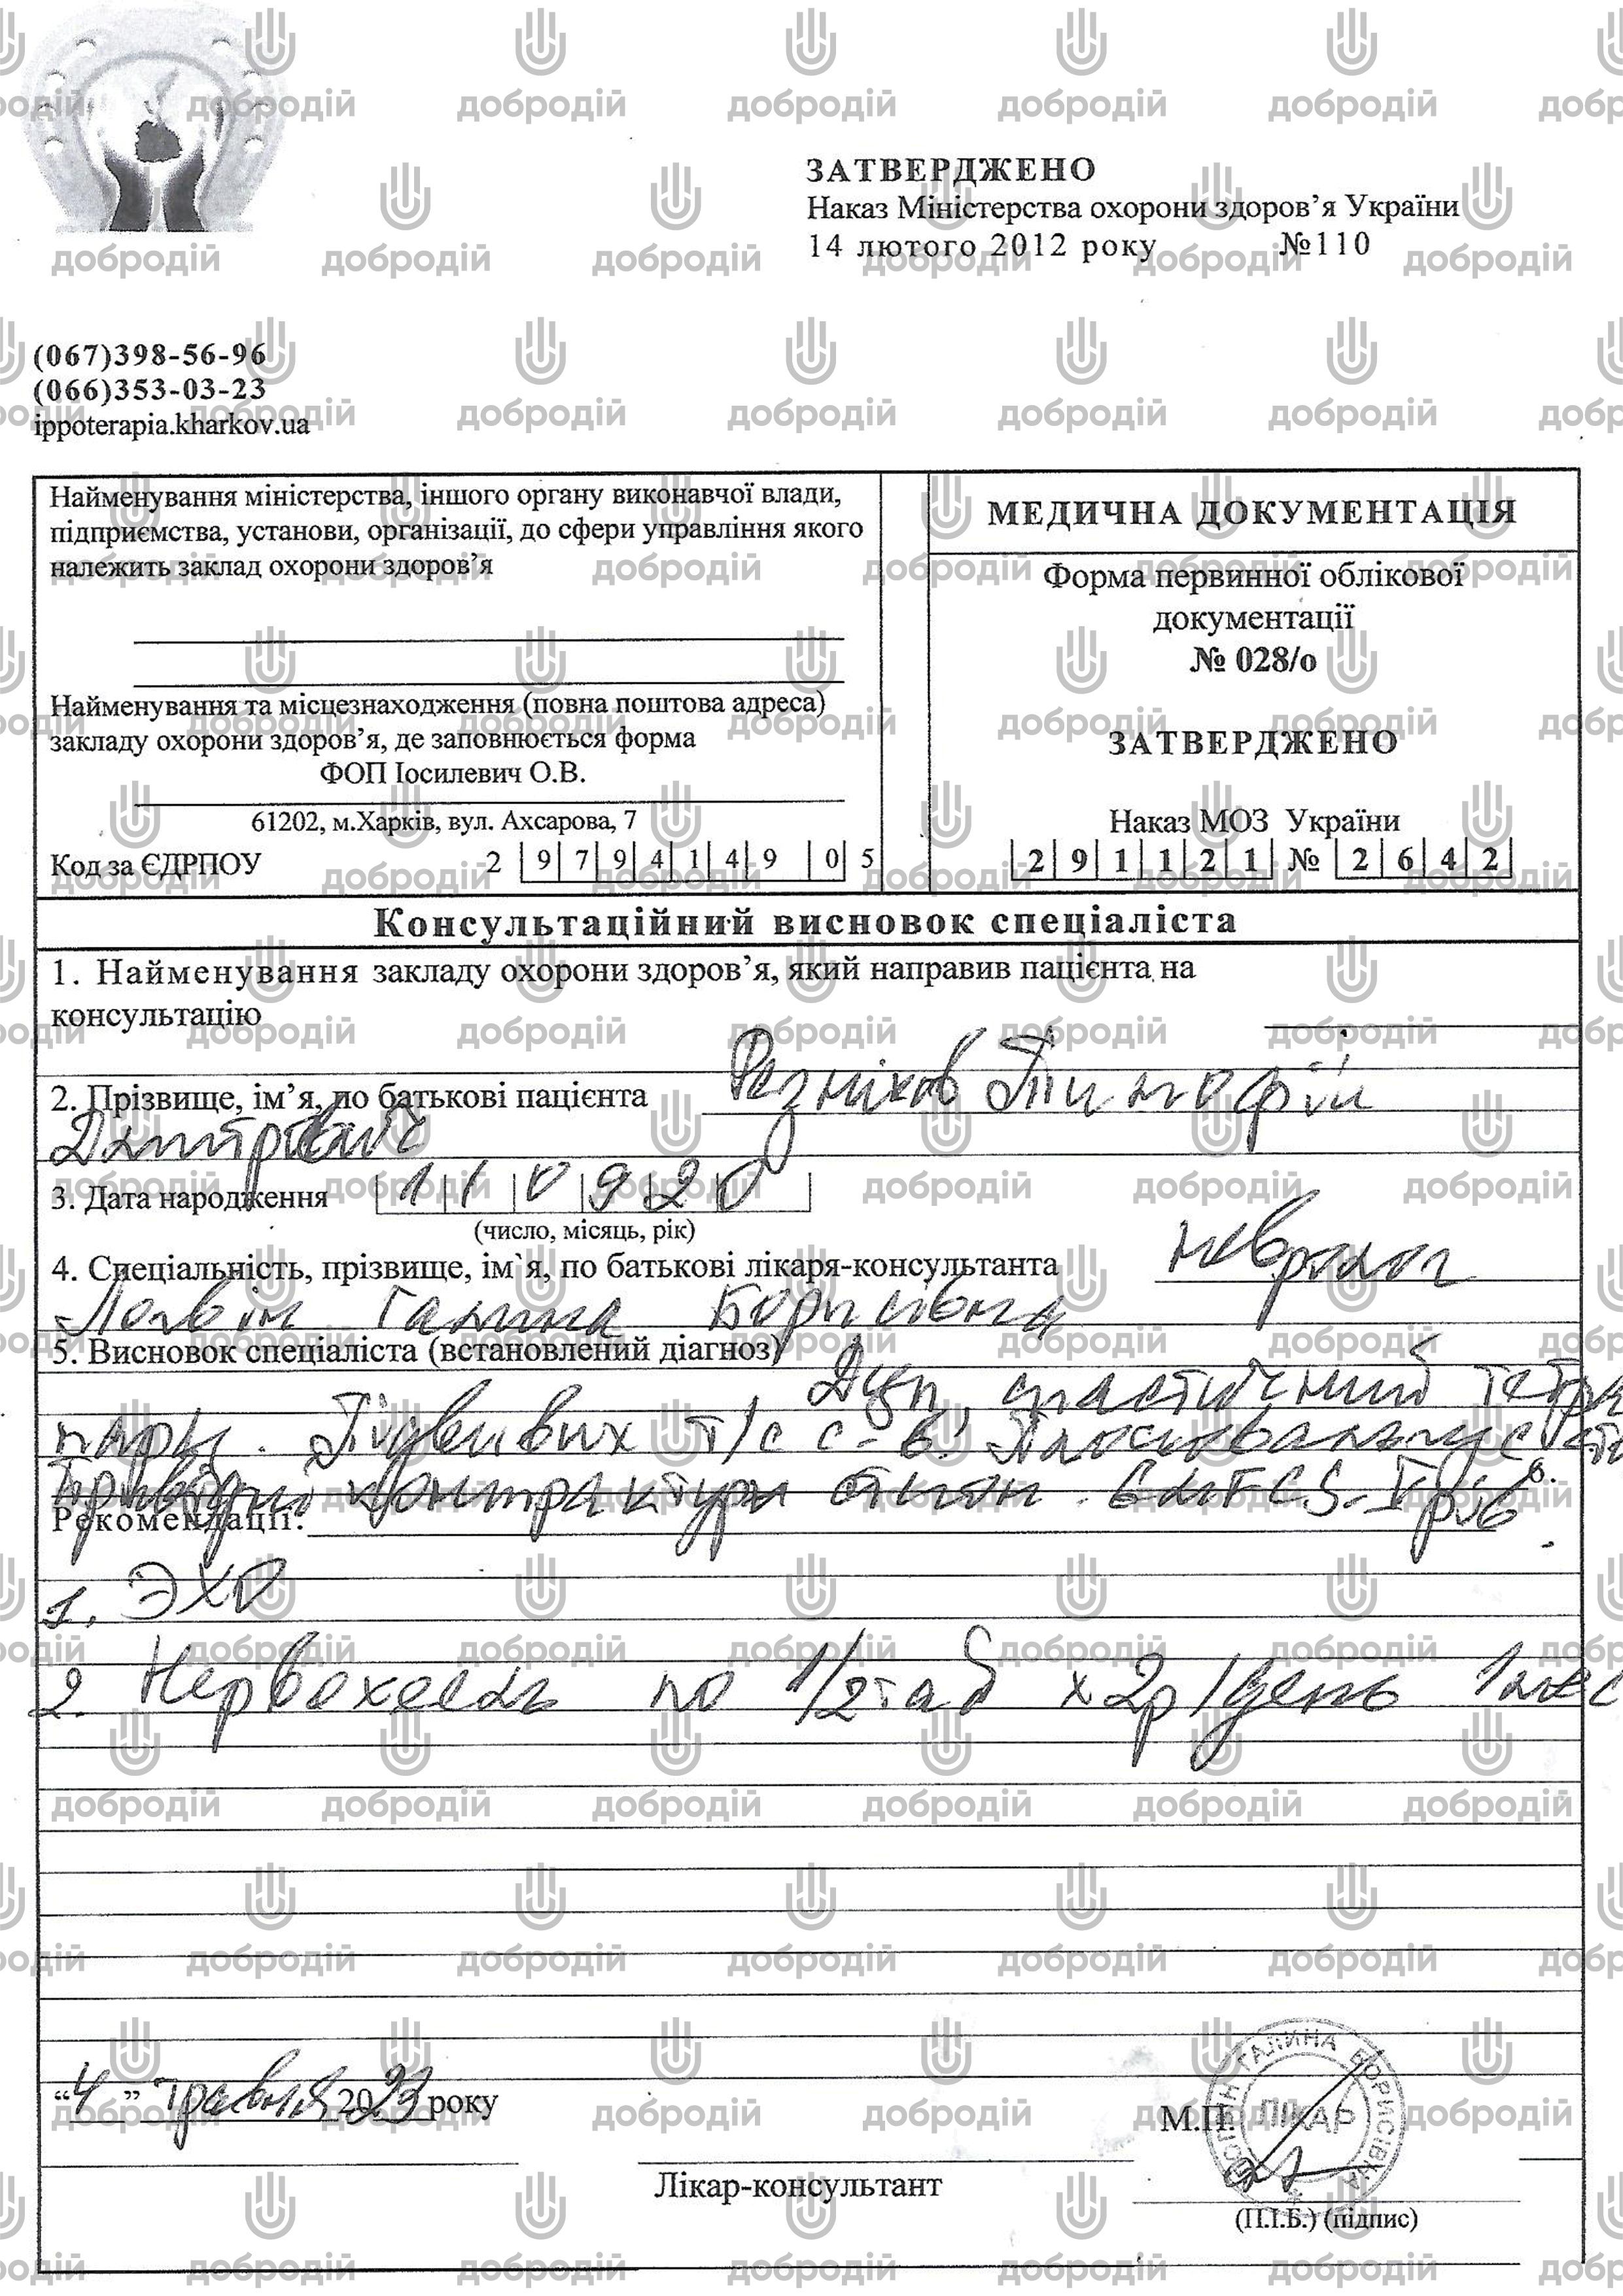 ЗАТВЕРДЖЕНО
Наказ Міністерства охорони здоров’я України
14 лютого 2012 року №110
(067)398-56-96
(066)353-03-23
ippoterapia.kharkov.ua
Найменування міністерства, іншого органу виконавчої влади,
підприємства, установи, організації, до сфери управління якого
належить заклад охорони здоров’я
Найменування та місцезнаходження (повна поштова адреса)
закладу охорони здоров’я, де заповнюється форма
ФОП Іосилевич О.В.
61202, м.Харків, вул. Ахсарова, 7
Код за ЄДРПОУ 2 9 7 9 4 1 4 9 0 5
МЕДИЧНА ДОКУМЕНТАЦІЯ
Форма первинної облікової
документації
№ 028/о
ЗАТВЕРДЖЕНО
Наказ МОЗ України
2 9 1 1 2 1 № 2 6 4 2
Консультаційний висновок спеціаліста
1. Найменування закладу охорони здоров’я, який направив пацієнта на
консультацію
2. Прізвище, ім’я, по батькові пацієнта Резніков Тимофій
Дмитрович
3. Дата народження 1 1 0 9 2 0
(число, місяць, рік)
4. Спеціальність, прізвище, ім`я, по батькові лікаря-консультанта невролог
Галина Борисівна
5. Висновок спеціаліста (встановлений діагноз)
Дцп, спастичний тетра
парез. Підвивих т/с с-в. Плосковальгус
контрактури стоп. GMFCS-V рів.
Рекомендації:
1. ЭХО
2. Нервохеель по 1/2 таб х 2р/день 1 мес
“4” травня 2023 року
М.П.
ГАЛИНА БОРИСІВНА
ЛІКАР
Лікар-консультант
(П.І.Б.) (підпис)
добродій